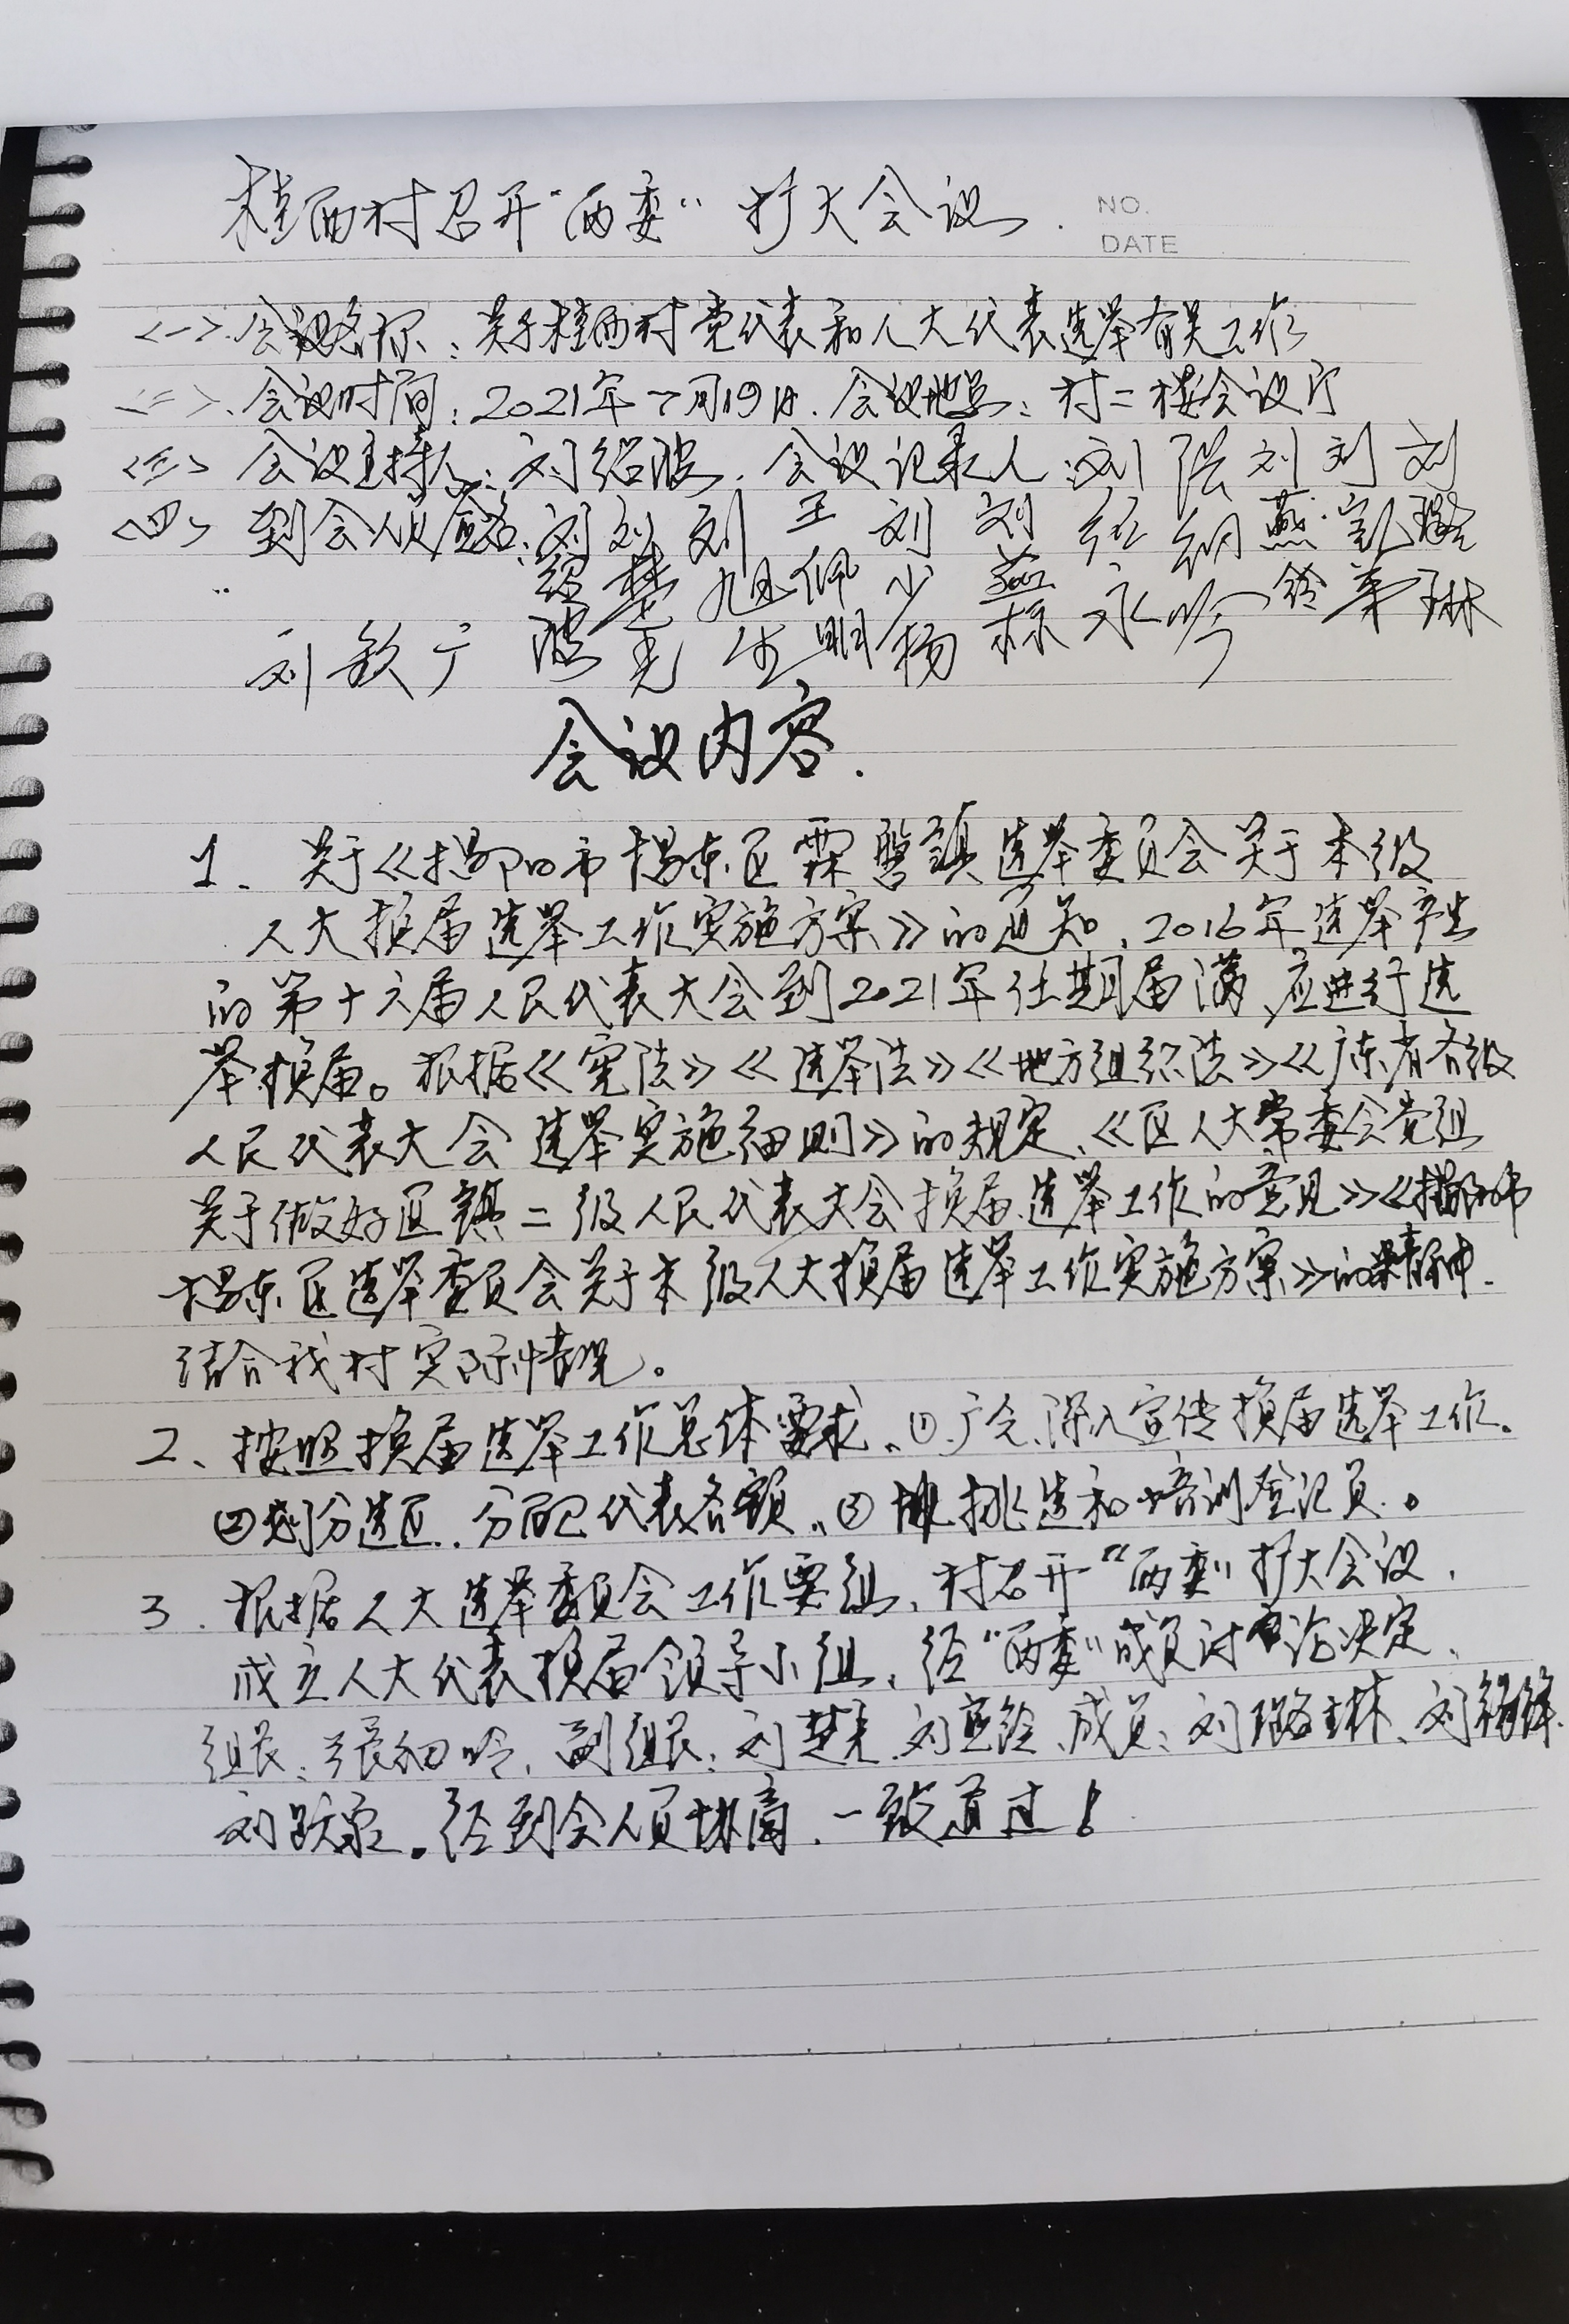 桂西村召开“两委”扩大会议.
NO.
DATE
<一>.会议名称:关于桂西村党代表和人大代表选举有关工作
<二>、会议时间:2021年7月19日.会议地点:村二楼会议厅
<三> 会议主持人:刘绍波.会议记录人:刘
<四> 到会人员签名:刘绍波 刘楚光 刘旭生 王佩明 刘少杨 刘燕
刘钦广
会议内容.
1、关于《揭阳市揭东区霖磐镇选举委员会关于本级
人大换届选举工作实施方案》的通知,2016年选举产生
的第十六届人民代表大会到2021年任期届满,应进行选
举换届。根据《宪法》《选举法》《地方组织法》《广东省各级
人民代表大会选举实施细则》的规定、《区人大常委会党组
关于做好区镇二级人民代表大会换届选举工作的意见》《揭阳市
揭东区选举委员会关于本级人大换届选举工作实施方案》的精神.
结合我村实际情况。
2、按照换届选举工作总体要求、①广泛、深入宣传换届选举工作。
②划分选区.分配代表名额、③挑选和培训登记员。
3.根据人大选举委员会工作要组,村召开“两委”扩大会议,
成立人大代表换届领导小组,经“两委”成员讨论决定,
组长:张纲吟,副组长:刘楚光.刘燕铃、成员:刘璐琳、刘
刘跃泉。经到会人员协商,一致通过!